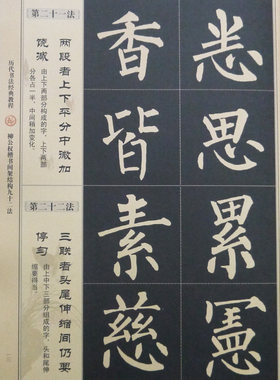 思
累
憲
香
皆
素
慈
第二十一法
两段者上下平分中微加
饶减
由上下两部分构成的字，上下两部
分各占一半，中间稍加变化。
第二十二法
三联者头尾伸缩间仍要
停匀
由上中下三部分组成的字，头和尾伸
缩要得当。
历代书法经典教程
柳公权楷书间架结构九十二法